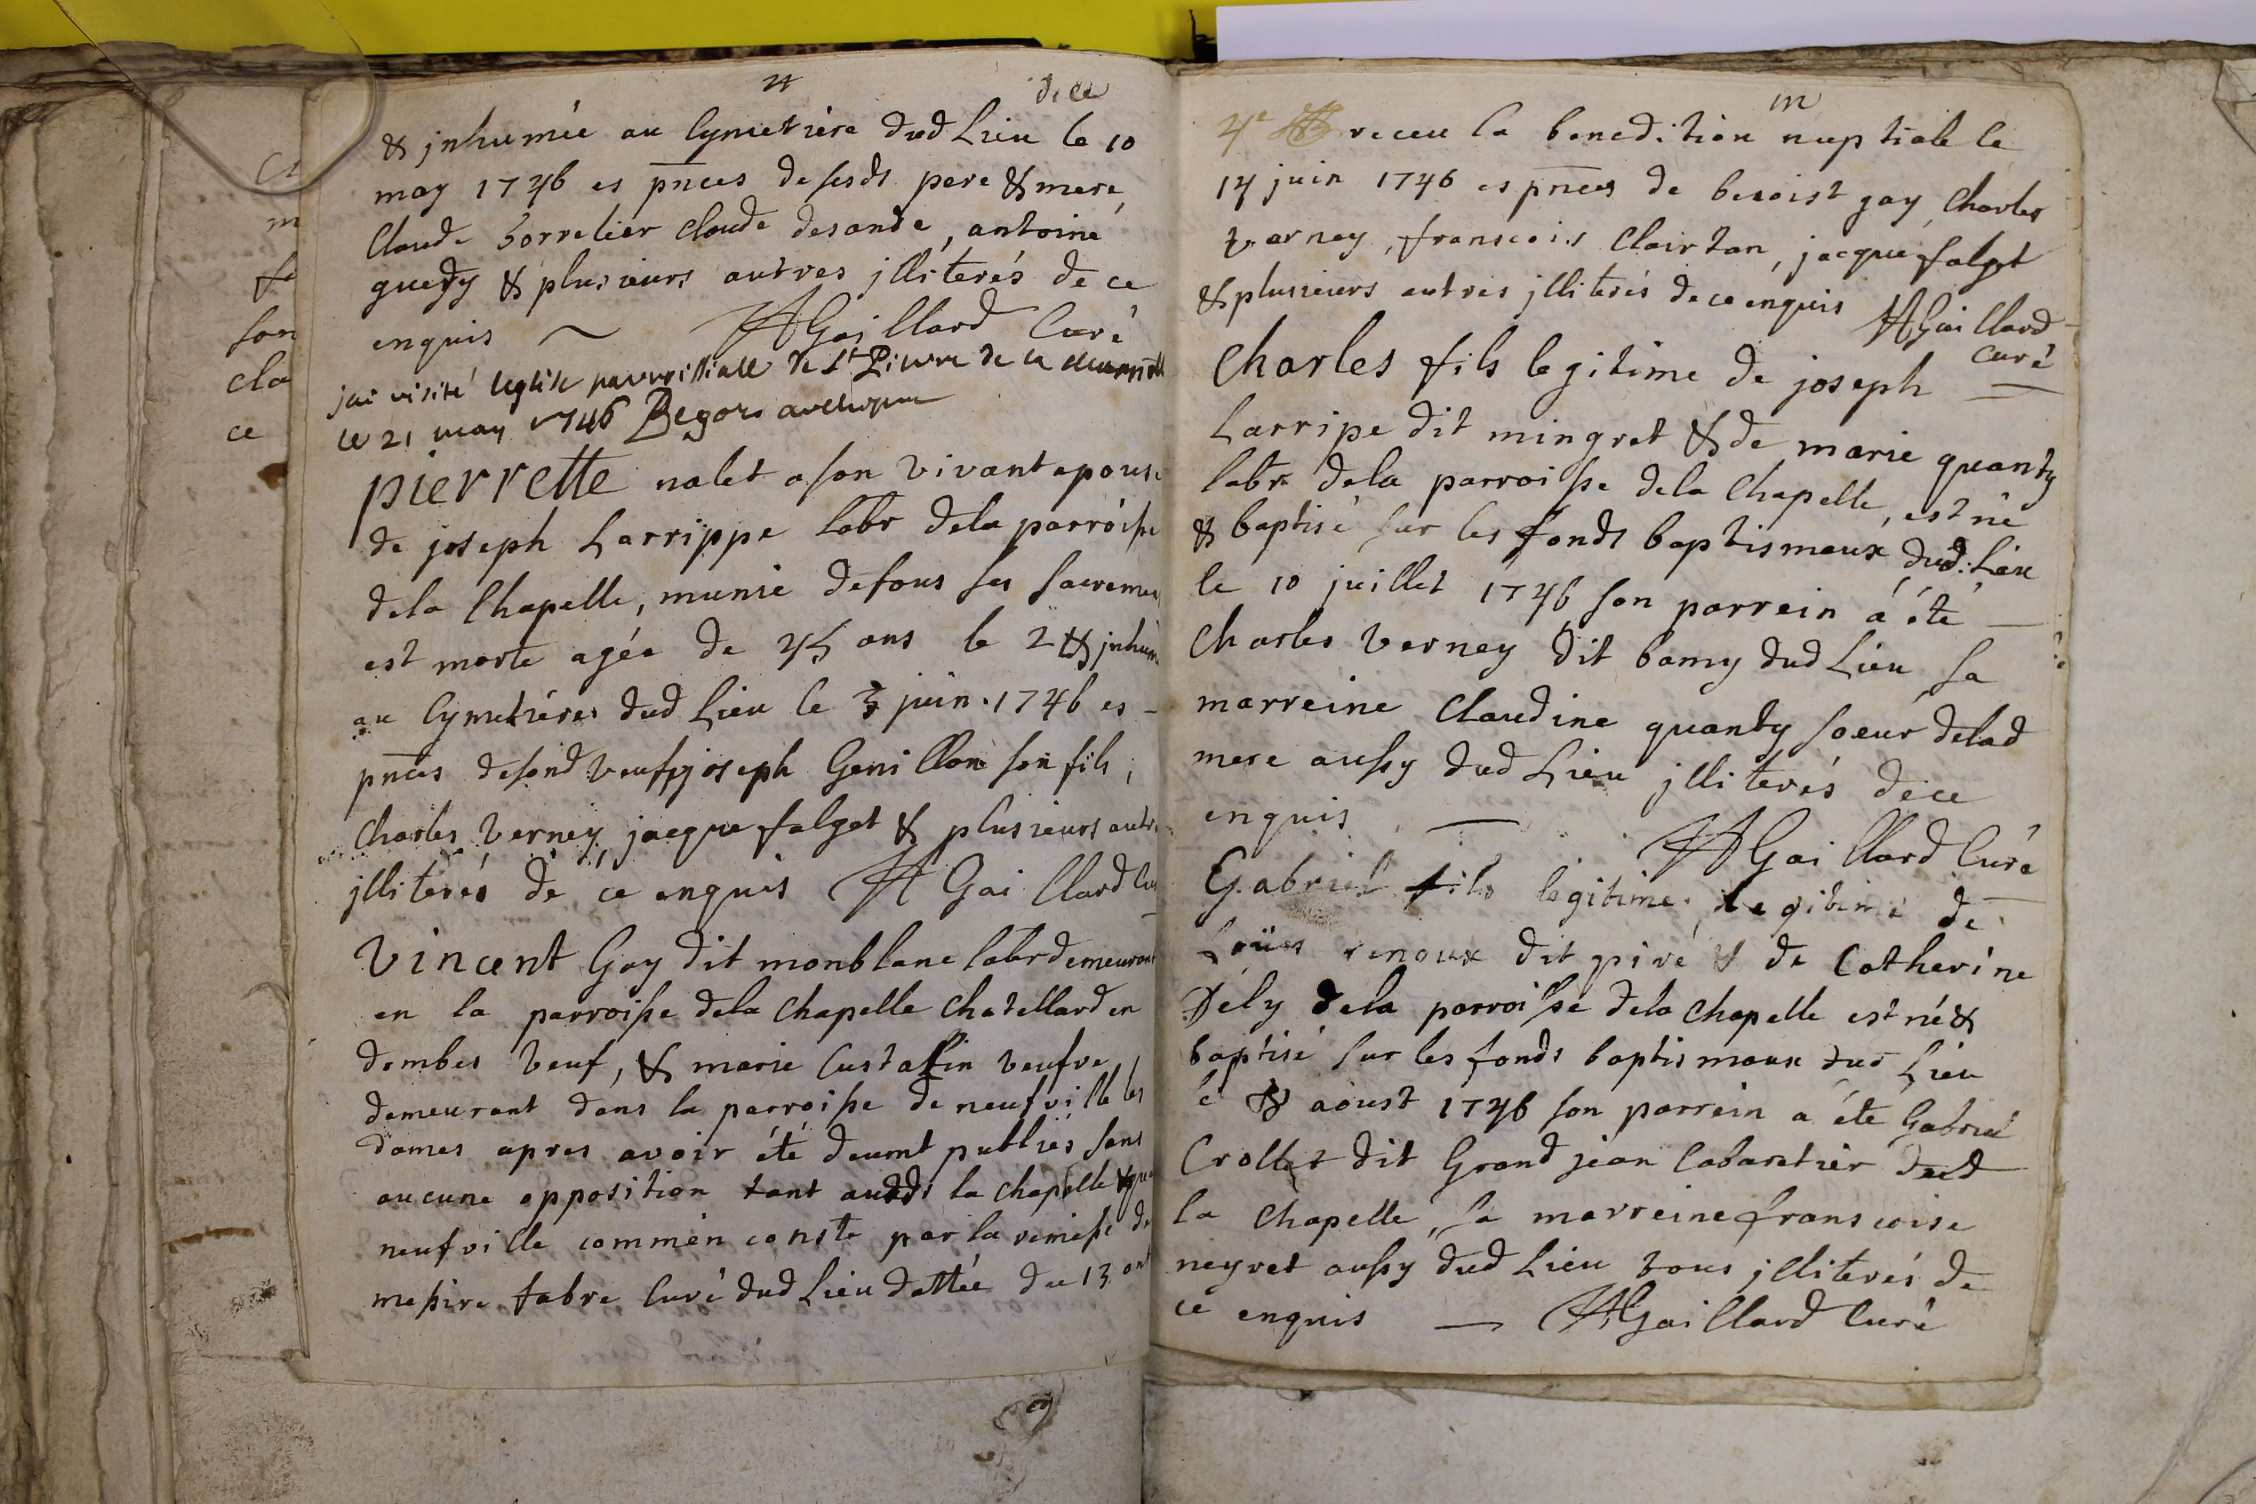 & jnhumée au Cymetiére dud Lieu le 10
may 1746 es pnces de sesds pere & mere,
Claude borrelier Claude desande, antoine
guedy & plusieurs autres jlliterés de ce
enquis ~ A Gaillard Curé
jai visité leglise parroissialle de St Pierre de la
le 21 may 1746
pierrette nalet a son vivant epouse
de joseph Larrippe labr dela parroisse
dela Chapelle, munie de tous ses sacremen
est morte agée de 45 ans le 2 & jnhum
au Cymetiéres dud Lieu le 3 juin 1746 es
pnces de sond veuf joseph Genillon son fils,
Charles Verney, jacque falget & plusieurs autr
jlliterés de ce enquis A Gaillard Cu
Vincent Gay dit monblanc labr demeurant
en la parroisse dela Chapelle Chatellard en
dombes veuf, & marie Custassin veufve
demeurant dans la parroisse de neufville les
dames apres avoir été deumt publiés sans
aucune opposition tant audds la Chapelle & que
neufville commen conste par la remisse de
messire fabre Curé dud Lieu dattée du 13 ont
receu la benedition nuptiale le
14 juin 1746 es pnces de benoist gay, Charles
varney, franscois Clairtan, jacque falget
& plusieurs autres jlliterés de ce enquis A Gaillard
curé
Charles fils legitime de joseph
Larripe dit mingret & de marie quanty
labr dela parroisse dela Chapelle, est né
& baptisé sur les fonds baptismaux dud. Lieu
le 10 juillet 1746 son parrein a été
Charles Verney dit bamy dud Lieu sa
marreine Claudine quanty soeur delad
mere aussy dud Lieu jlliterés de ce
enquis — A Gaillard Curé
Gabriel fils legitime legitime de
Loüis renoux dit piré & de Catherine
Dély dela parroisse dela Chapelle est né &
baptisé sur les fonds baptismaux dud Lieu
le 8 aoust 1746 son parrein a été Gabriel
Crollet dit Grand jean Cabaretier dud
la Chapelle, sa marreine franscoise
neyret aussy dud Lieu tous jlliterés de
ce enquis — A Gaillard Curé